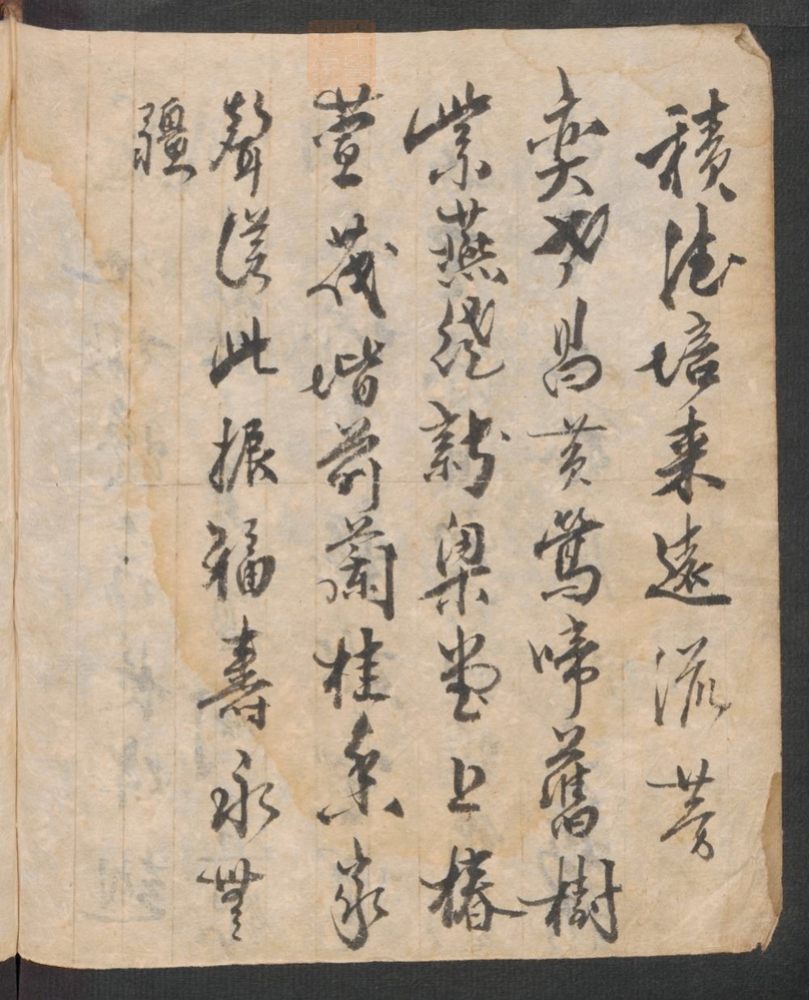 積德培來遠流芳
奕世昌黃鶯啼舊樹
紫燕繞新梁堂上椿
萱茂堦前蘭桂香家
聲從此振福壽永無
疆